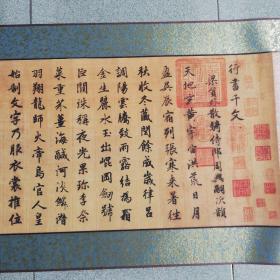 行書千文
梁員外散騎侍郎周興嗣次韻
天地玄黃宇宙洪荒日月
盈昃辰宿列張寒來暑往
秋收冬藏閏餘成歲律呂
調陽雲騰致雨露結為霜
金生麗水玉出崑岡劍號
巨闕珠稱夜光果珍李柰
菜重芥薑海鹹河淡鱗潛
羽翔龍師火帝鳥官人皇
始制文字乃服衣裳推位